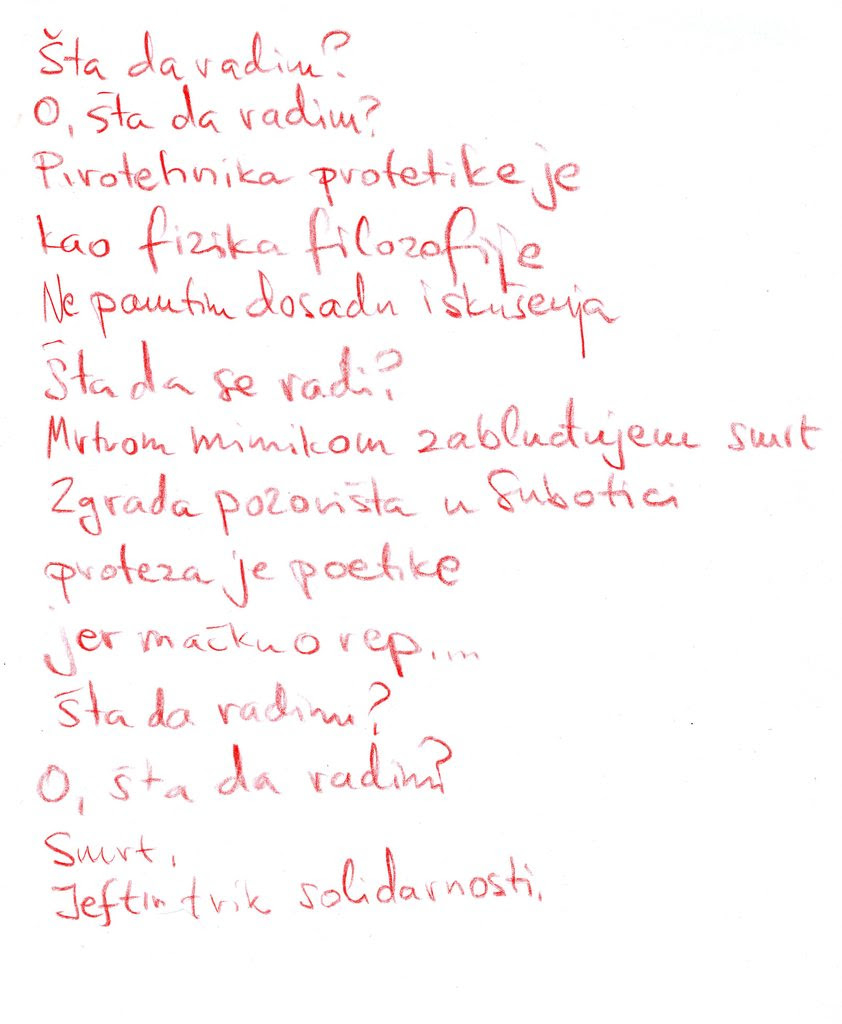 Šta da radim?
O, šta da radim?
Pirotehnika protetike je
kao fizika filozofije
Ne pamtim dosadu iskušenja
Šta da se radi?
Mrtvom mimikom zabluđujem smrt
Zgrada pozorišta u Subotici
proteza je poetike
jer mačku o rep....
Šta da radim?
O, šta da radim?
Smrt,
Jeftin trik solidarnosti.